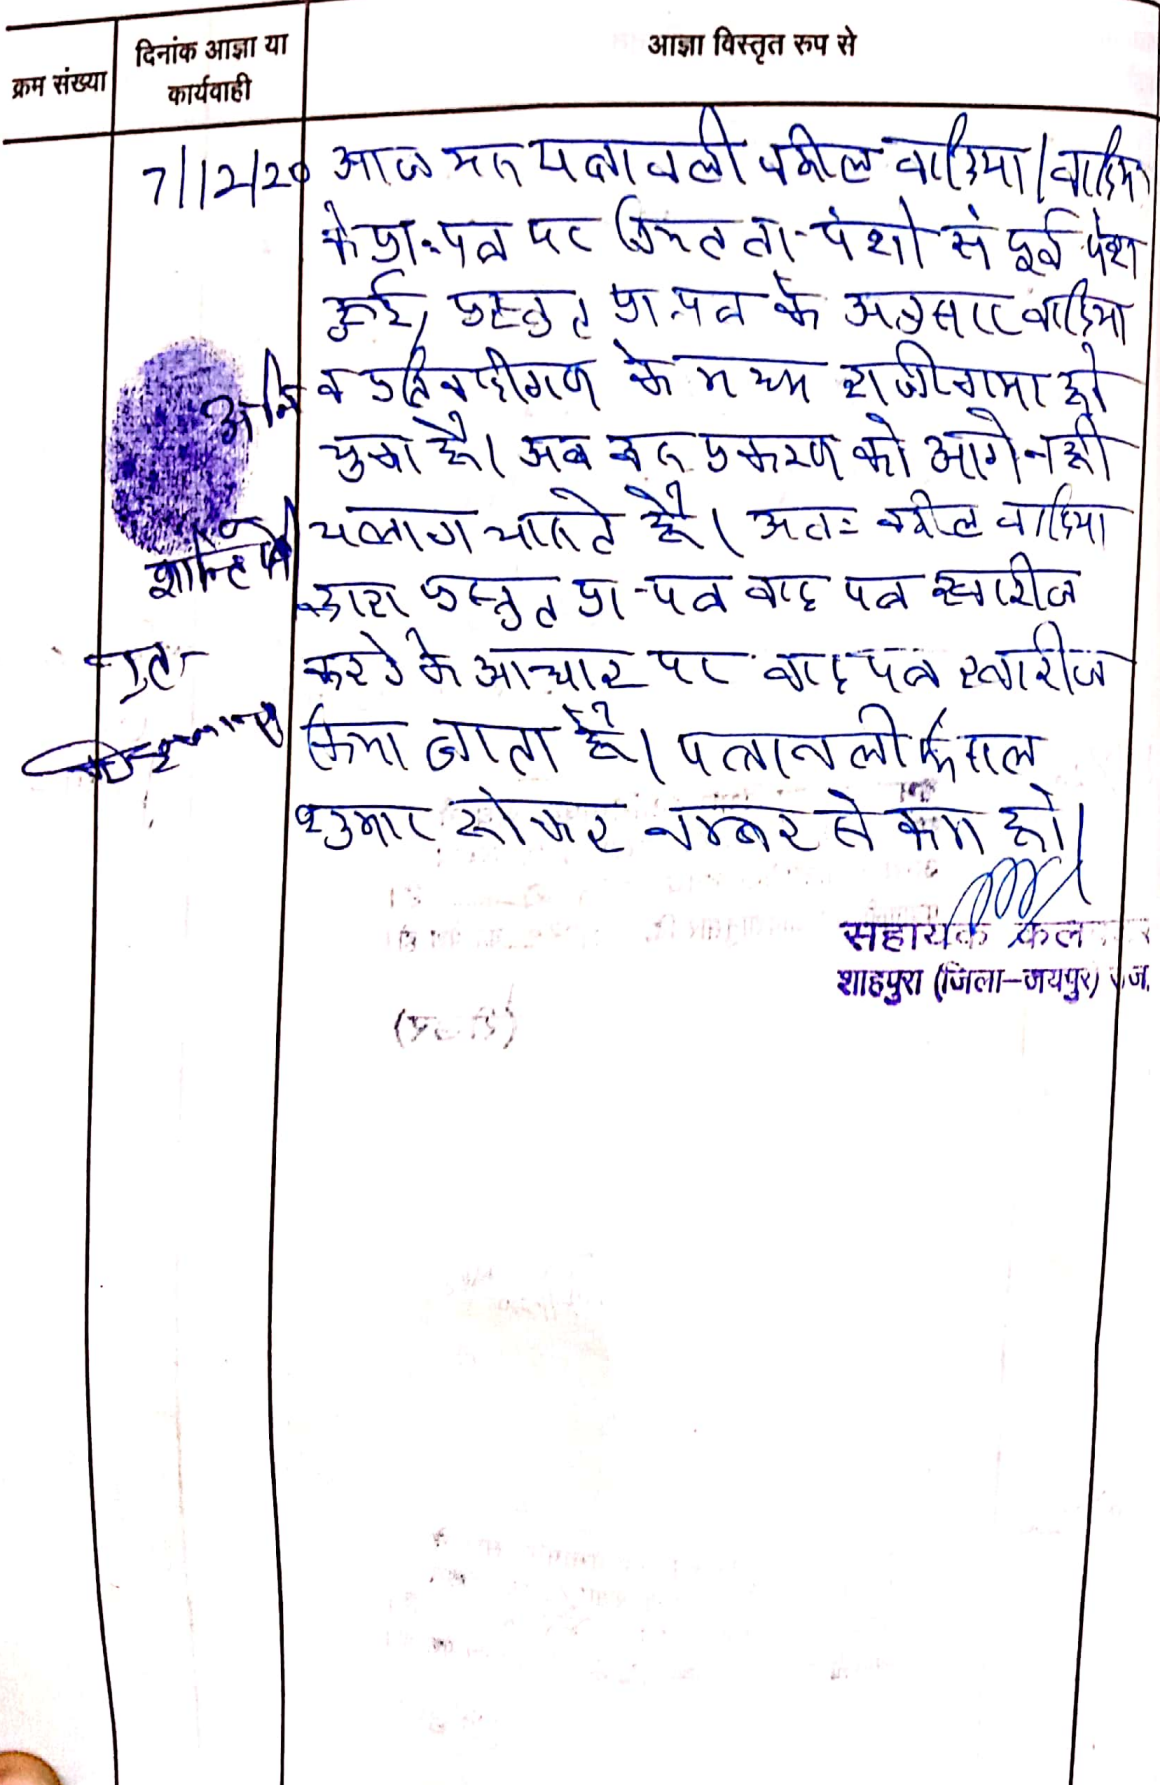 क्रम संख्या
दिनांक आज्ञा या
कार्यवाही
आज्ञा विस्तृत रुप से
7/12/20 आज यह पत्रावली वकील वादिया / वादिया
के प्रा. पत्र पर नियत ता. पेशी से पूर्व पेश
हुई, प्रस्तुत प्रा. पत्र के अनुसार वादिया
व प्रतिवादीगण के मध्य राजीनामा हो
चुका है। अब वह प्रकरण को आगे नही
चलाना चाहते है। अतः वकील वादिया
द्वारा प्रस्तुत प्रा-पत्र वाद पत्र खारीज
करने के आधार पर वाद पत्र खारीज
किया जाता है। पत्रावली फैसल
शुमार होकर नम्बर से कम हो।
सहायक कल
शाहपुरा (जिला-जयपुर)